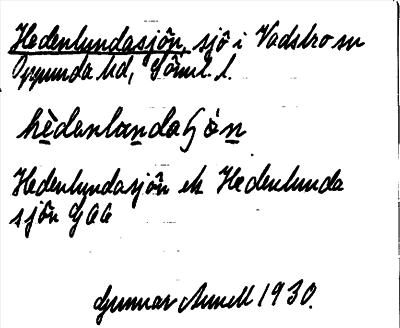 Hedenlundasjön, sjö i Vadsbro sn
Oppunda hd, Söml. l.
hèdenlundaʃǿn
Hedenlundasjön ek Hedenlunda
sjön GEA
Gunnar Arnell 1930.